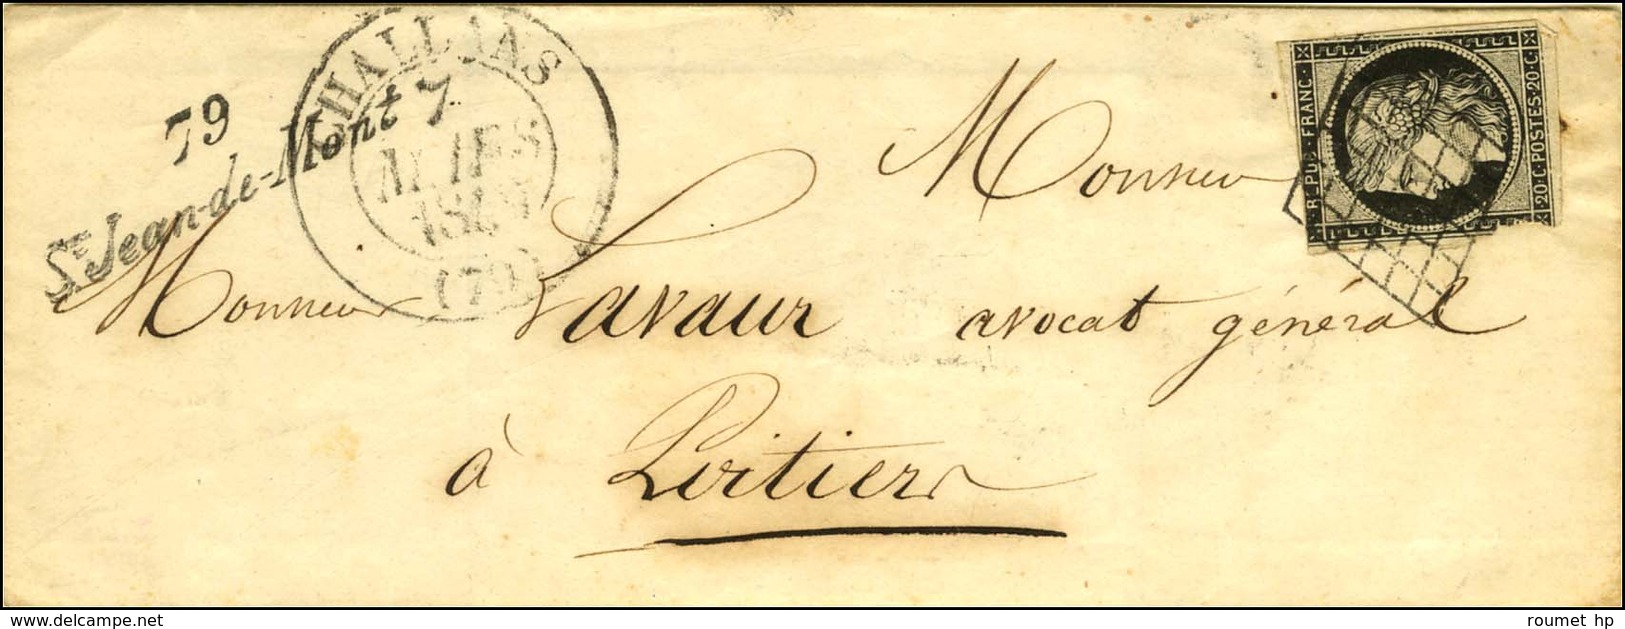 79
St Jean-de-Mont
CHALLANS
7
MARS
1849
(79)
REPUB · FRANC ·
20 · C · POSTES · 20 · C ·
Monsieur
Monsieur Lavaur avocat général
à Poitiers
www.delcampe.net
roumet hp